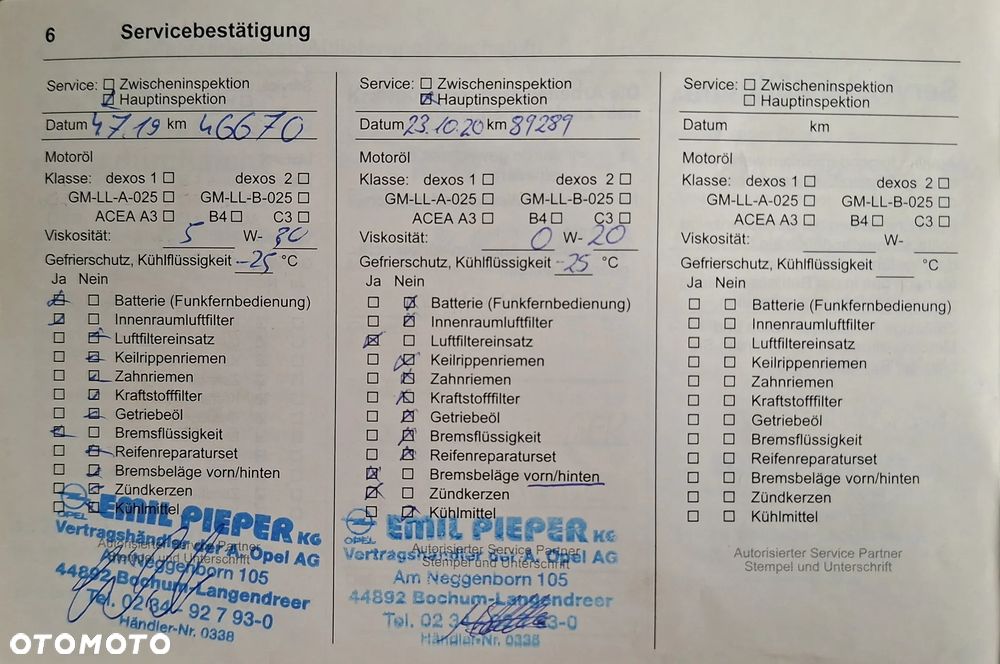 6 Servicebestätigung
Service: Zwischeninspektion
Hauptinspektion
Datum 4 7 19 km 46670
Motoröl
Klasse: dexos 1 dexos 2
GM-LL-A-025 GM-LL-B-025
ACEA A3 B4 C3
Viskosität: 5 W-
Gefrierschutz, Kühlflüssigkeit -25 °C
Ja Nein
Batterie (Funkfernbedienung)
Innenraumluftfilter
Luftfiltereinsatz
Keilrippenriemen
Zahnriemen
Kraftstofffilter
Getriebeöl
Bremsflüssigkeit
Reifenreparaturset
Bremsbeläge vorn/hinten
Zündkerzen
Kühlmittel
OPEL EMIL PIEPER KG
Vertragshändler der A. Opel AG
Autorisierter Service Partner
Stempel und Unterschrift
Am Neggenborn 105
44892 Bochum-Langendreer
Tel. 02 34 - 92 7 93-0
Händler-Nr. 0338
Service: Zwischeninspektion
Hauptinspektion
Datum 23.10.20 km 89289
Motoröl
Klasse: dexos 1 dexos 2
GM-LL-A-025 GM-LL-B-025
ACEA A3 B4 C3
Viskosität: 0 W- 20
Gefrierschutz, Kühlflüssigkeit -25 °C
Ja Nein
Batterie (Funkfernbedienung)
Innenraumluftfilter
Luftfiltereinsatz
Keilrippenriemen
Zahnriemen
Kraftstofffilter
Getriebeöl
Bremsflüssigkeit
Reifenreparaturset
Bremsbeläge vorn/hinten
Zündkerzen
Kühlmittel
OPEL EMIL PIEPER KG
Autorisierter Service Partner
Vertragshändler der A. Opel AG
Stempel und Unterschrift
Am Neggenborn 105
44892 Bochum-Langendreer
Tel. 02 3 3-0
Händler-Nr. 0338
Service: Zwischeninspektion
Hauptinspektion
Datum km
Motoröl
Klasse: dexos 1 dexos 2
GM-LL-A-025 GM-LL-B-025
ACEA A3 B4 C3
Viskosität: W-
Gefrierschutz, Kühlflüssigkeit °C
Ja Nein
Batterie (Funkfernbedienung)
Innenraumluftfilter
Luftfiltereinsatz
Keilrippenriemen
Zahnriemen
Kraftstofffilter
Getriebeöl
Bremsflüssigkeit
Reifenreparaturset
Bremsbeläge vorn/hinten
Zündkerzen
Kühlmittel
Autorisierter Service Partner
Stempel und Unterschrift
OTOMOTO